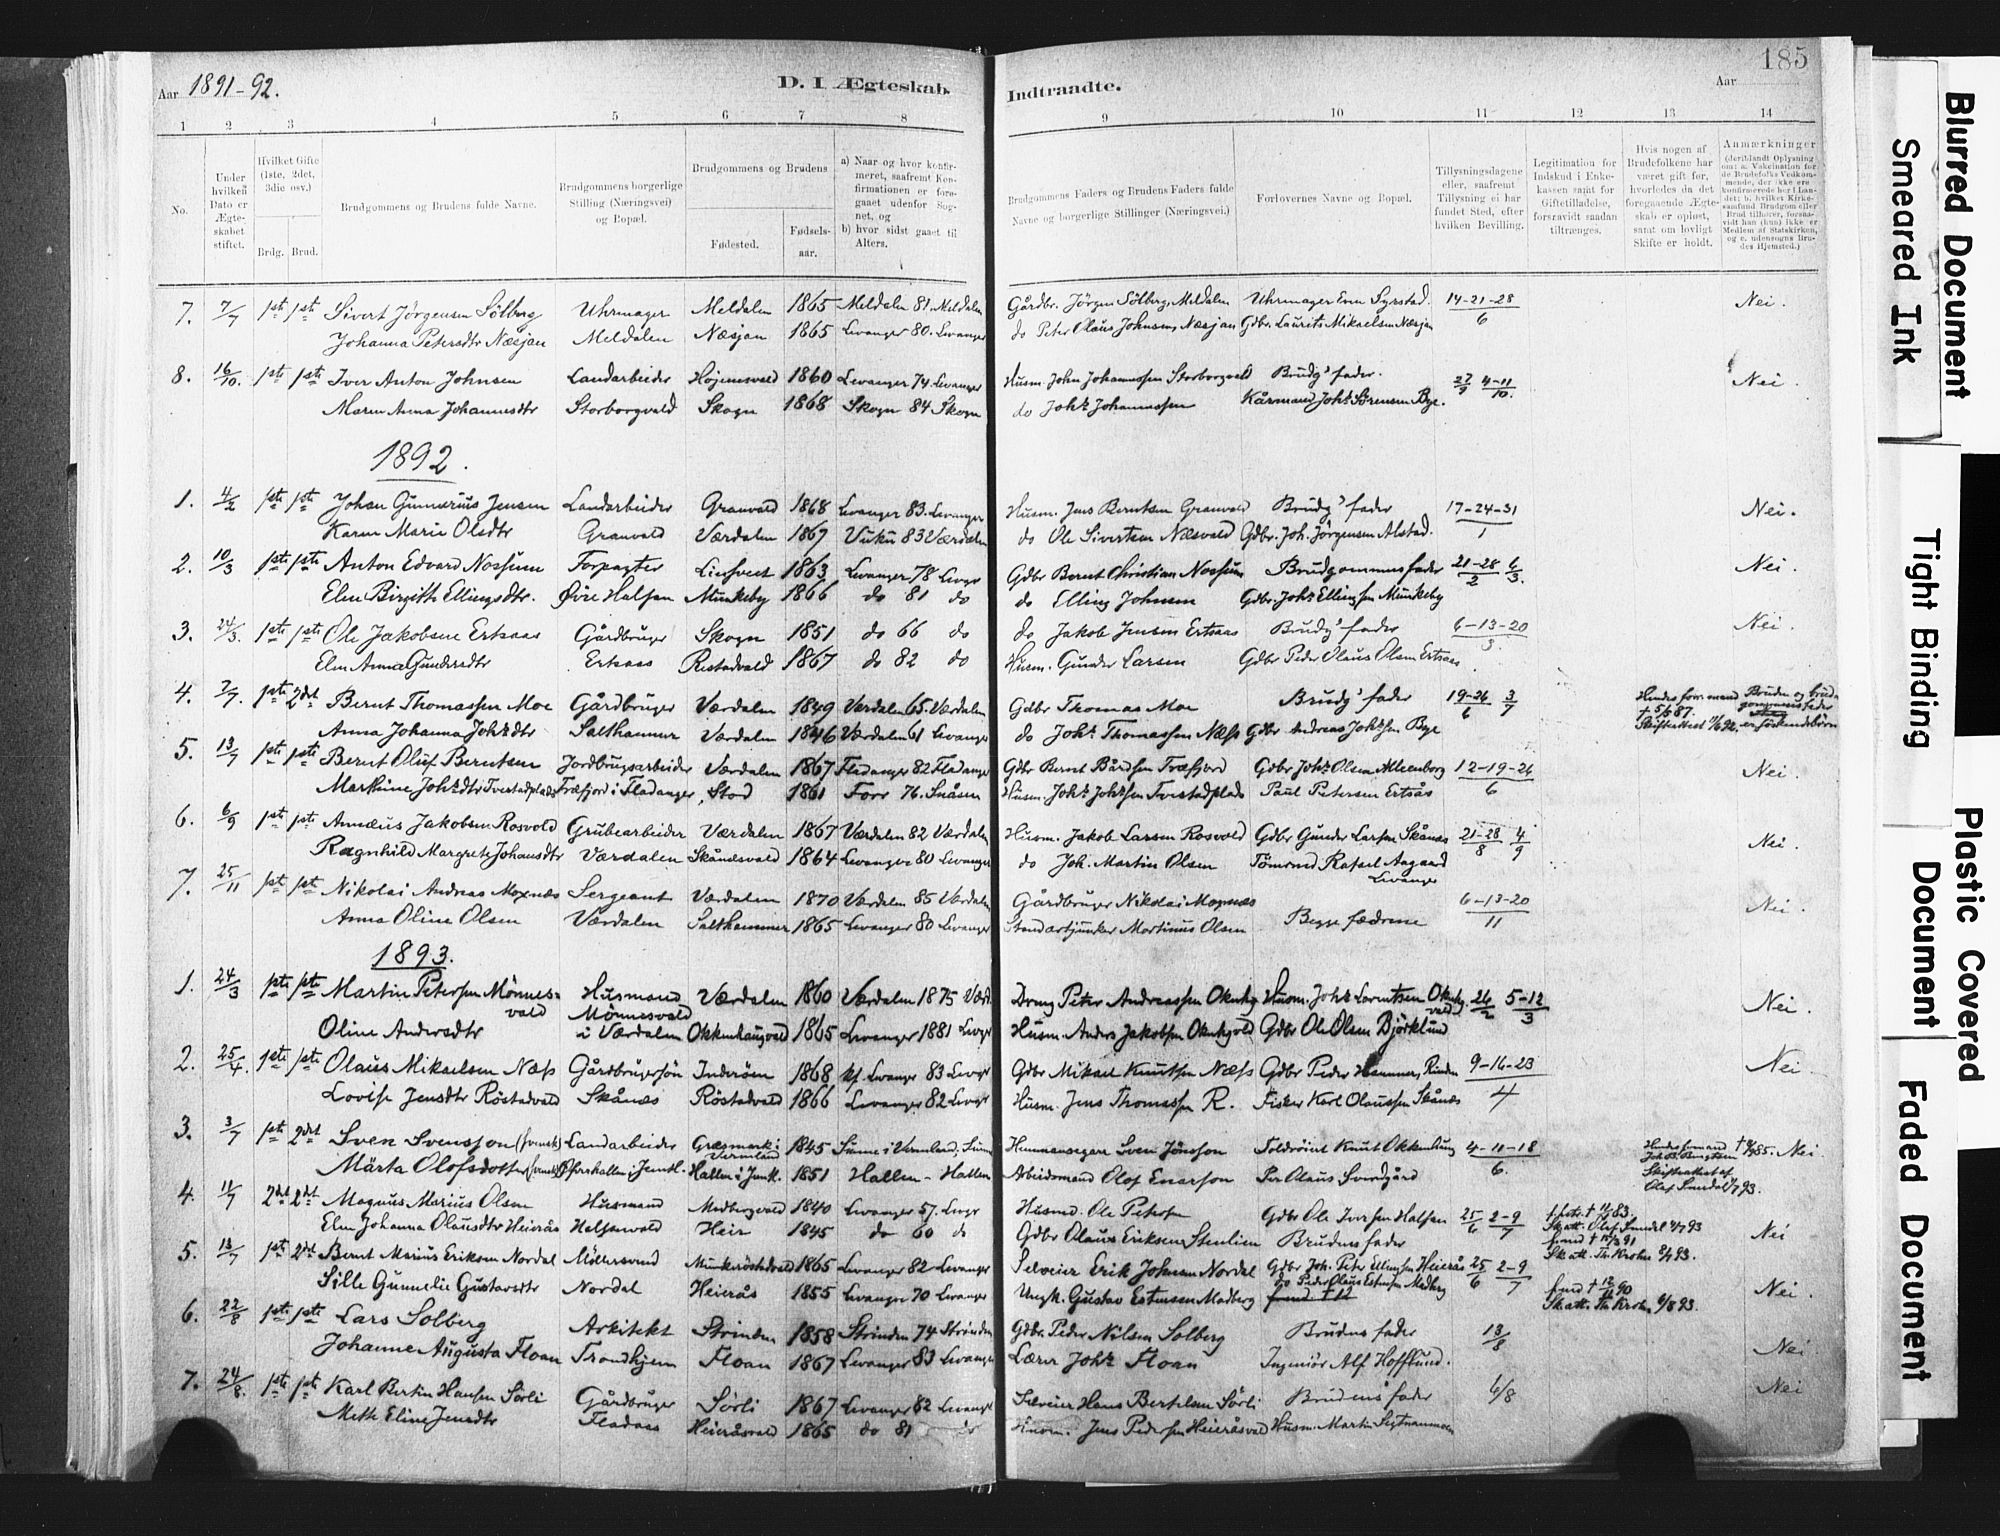 Aar 1891-92.
D. I Ægteskab.
1 2 3 4 5 6 7 8
No.
Under hvilken Dato er Ægteskabet stiftet.
Hvilket Gifte (1ste, 2det, 3die osv.)
Brdg. Brud.
Brudgommens og Brudens fulde Navne.
Brudgommens borgerlige Stilling (Næringsvei) og Bopæl.
Brudgommens og Brudens
Fødested.
Fødsels-aar.
a) Naar og hvor konfir-
meret, saafremt Kon-
firmationen er fore-
gaaet udenfor Sog-
net, og
b) hvor sidst gaaet til
Alters.
7. 7/7 1ste 1ste Sivert Jörgensen Sölberg Uhrmager Meldalen 1865 Meldalen 81. Meldalen
Johanna Petersdtr Næsjan Meldalen Næsjan 1865 Levanger 80. Levanger
8. 16/10. 1ste 1ste Iver Anton Johnsen Landarbeider Höjemsvald 1860 Levanger 74. Levanger
Maren Anna Johannesdtr Storborgvald Skogn 1868 Skogn 84 Skogn
1892.
1. 4/2 1ste 1ste Johan Gunnerius Jensen Landarbeider Granvald 1868 Levanger 83. Levanger
Karen Marie Olsdtr Granvald Værdalen 1867 Vuku 83 Værdalen
2. 10/3 1ste 1ste Anton Edvard Nossum Forpagter 1863 Levanger 78 Levgr
Elen Birgitte Ellingsdtr. Øvre Halsan Munkeby 1866 do 81 do
3. 24/3. 1ste 1ste Ole Jakobsen Ertsaas Gårdbruger Skogn 1851 do 66 do
Elen Anna Gundersdtr Ertsaas Restadvald 1867 do 82 do
4. 7/7. 1ste 2det Bernt Thomassen Moe Gårdbruger Værdalen 1849 Værdalen 65. Værdalen
Anna Johanna Johsdtr Salthammer Værdalen 1846 Værdalen 61 Levanger
5. 13/7 1ste 1ste Bernt Oluf Berntsen Jordbrugsarbeider Værdalen 1867 Fladanger 82 Fladanger
Johsdtr Tvestadplads Træfjord i Fladanger, Stod 1861 Forr 76. Snåsen
6. 6/9 1ste 1ste Annæus Jakobsen Rosvold Grubearbeider Værdalen 1867 Værdalen 82 Værdalen
Ragnhild Margrete Johansdtr Værdalen Skånesvald 1864 Levanger 80 Levanger
7. 25/11 1ste 1ste Nikolai Andreas Moxnæs Sergeant Værdalen 1870 Værdalen 85 Værdalen
Anna Oline Olsen Værdalen Salthammer 1865 Levanger 80 Levanger
1893.
1. 24/3 1ste 1ste Martin Petersen Mönnes-
vald Husmand Mönnesvald Værdalen 1860 Værdalen 1875 Værd.
Oline Andersdtr i Værdalen Okkenhaugvald 1865 Levanger 1881 Levgr
2. 25/4. 1ste 1ste Olaus Mikaelsen Næss Gårdbrugersön Inderöen 1868 Levanger 83 Levgr
Lovise Jensdtr Röstadvald Skånæs Röstadvald 1866 Levanger 82 Levgr
3. 3/7 1ste 2det Sven Svensson (svensk) Landarbeider Græsmark i Vermland 1845 Sunne i Vermland, Sunne
Märta Olofsdotter Hallen i Jemtl. 1851 Hallen - Hallen
4. 11/7 2det 2det Magnus Marius Olsen Husmand Modbergvald 1840 Levanger 57. Levgr
Elen Johanna Olausdtr Heierås Halsanvald Heir 1845 do 60 do
5. 13/7 1ste 2det Bernt Marius Eriksen Nordal Möllersvend 1865 Levanger 82 Levanger
Sille Gunnelie Gustavsdtr Nordal Heierås 1855 Levanger 70 Levanger
6. 22/8 1ste 1ste Lars Solberg Arkitekt Strinden 1858 Strinden 74 Strinden
Johanne Augusta Floan Trondhjem Floan 1867 Levanger 83 Levanger
7. 24/8. 1ste 1ste Karl Bertin Hansen Sörli Gårdbruger Sörli 1867 Levanger 82 Levanger
Mette Eline Jensdtr Fladaas Heieråsvald 1865 do 81
185
Indtraadte.
Aar
9 10 11 12 13 14
Brudgommens Faders og Brudens Faders fulde Navne og borgerlige Stillinger (Næringsvei.)
Forlovernes Navne og Bopæl.
Tillysningsdagene eller, saafremt Tillysning ei har fundet Sted, efter hvilken Bevilling.
Legitimation for Indskud i Enkekassen samt for Giftetilladelse, forsaavidt saadan tiltrænges.
Hvis nogen af Brudefolkene har været gift før, hvorledes da det foregaaende Ægteskab er opløst, samt om lovligt Skifte er holdt.
Anmærkninger
(deriblandt Oplysning om: a. Vakcination for de Brudefolks Vedkommende, der ikke ere konfirmerede her i Landet; b. hvilket Kirkesamfund Brudgom eller Brud tilhører, forsaavidt han (hun) ikke er Medlem af Statskirken, og c. udensogns Brudes Hjemsted.)
Gårdbr. Jörgen Sölberg, Meldalen Uhrmager Even Syrstad. 14-21-28/6 Nei.
do Peter Olaus Johnsen, Næsjan Gdbr. Laurits Mikaelsen Næsjan
Husm. John Johannessen Storborgvald Brudg's fader. 27/9 4-11/10. Nei.
do Johs Johannessen Kårmand Johs Sörensen Bye.
Husm. Jens Berntsen Granvald Brudg's fader 17-24-31/1 Nei.
do Ole Sivertsen Næsvald Gdbr. Joh. Jörgensen Alstad.
Gdbr Bernt Christian Nossum Brudgommens fader 21-28/2 6/3. Nei.
do Elling Johnsen Gdbr. Johs Ellingsen Munkeby
do Jakob Jensen Ertsaas Brudg's fader 6-13-20/3 Nei.
Husm. Gunder Larsen Gdbr Peder Olaus Olsen Ertsaas
Gdbr Thomas Moe Brudg's fader 19-26/6 3/7 Hendes forr. mand † 5/3 87. Bruden og brudgommens fader er söskendebörn
do Johs Thomassen Næss Gdbr Andreas Johssen Bye
Gdbr Bernt Bårdsen Træfjord Gdbr Johs Olsen 12-19-26/6 Nei.
Husm. Johs Johssen Tvestadplads Paul Petersen Ertsås
Husm. Jakob Larsen Rosvold Gdbr Gunder Larsen Skånes 21-28/8 4/9 Nei.
do Joh. Martin Olsen Tömmmd Rafael Aagaard
Levanger
Gårdbruger Nikolai Moxnæs Begge fædrene 6-13-20/11 Nei.
Standartjunker Mortinus Olsen
Peter Andreassen Husm. Johs Lorentsen 26/2 5-12/3 Nei.
Husm. Anders Jakobsen Gdbr Ole Olsen Björklund
Gdbr Mikael Knutsen Næss Gdbr Peder Hammer, Rinden 9-16-23/4 Nei.
Husm. Jens Thomassen R. Fisker Karl Olaussen Skånæs
Hemmansegare Sven Jönsson Knut Okkenhaug 4-11-18/6. Nei.
Arbeidsmand Olof Enarson Per Olaus Sverdgård
Husmd. Ole Petersen Gdbr Ole Iversen Halsan 25/6 2-9/7 Nei
Gdbr Olaus Eriksen Stenlien Brudens fader
Selveier Erik Johnsen Nordal Gdbr Joh. Peter Ellingsen Heierås 25/6 2-9/7 Nei.
Ungk. Gustav Estensen Modberg do Peder Olaus Estensen Modberg
Gdbr. Peder Nilsen Solberg Brudens fader 13/8 Nei
Lærer Johs Floan Ingeniör Alf Hofflund.
Selveier Hans Bertelsen Sörli Brudens fader 6/8 Nei
Husm. Jens Pedersen Heieråsvald Husm. Martin
Blurred Document
Smeared Ink
Tight Binding
Plastic Covered Document
Faded Document